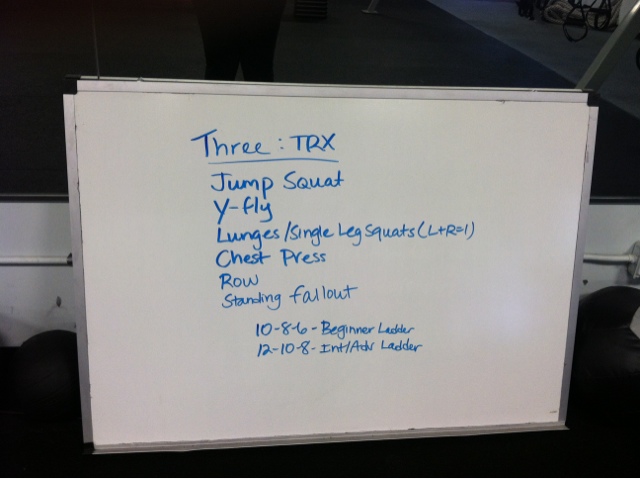 Three: TRX
Jump Squat
Y-fly
Lunges/Single Leg Squats (L+R=1)
Chest Press
Row
Standing fallout
10-8-6-Beginner Ladder
12-10-8-Int/Adv Ladder